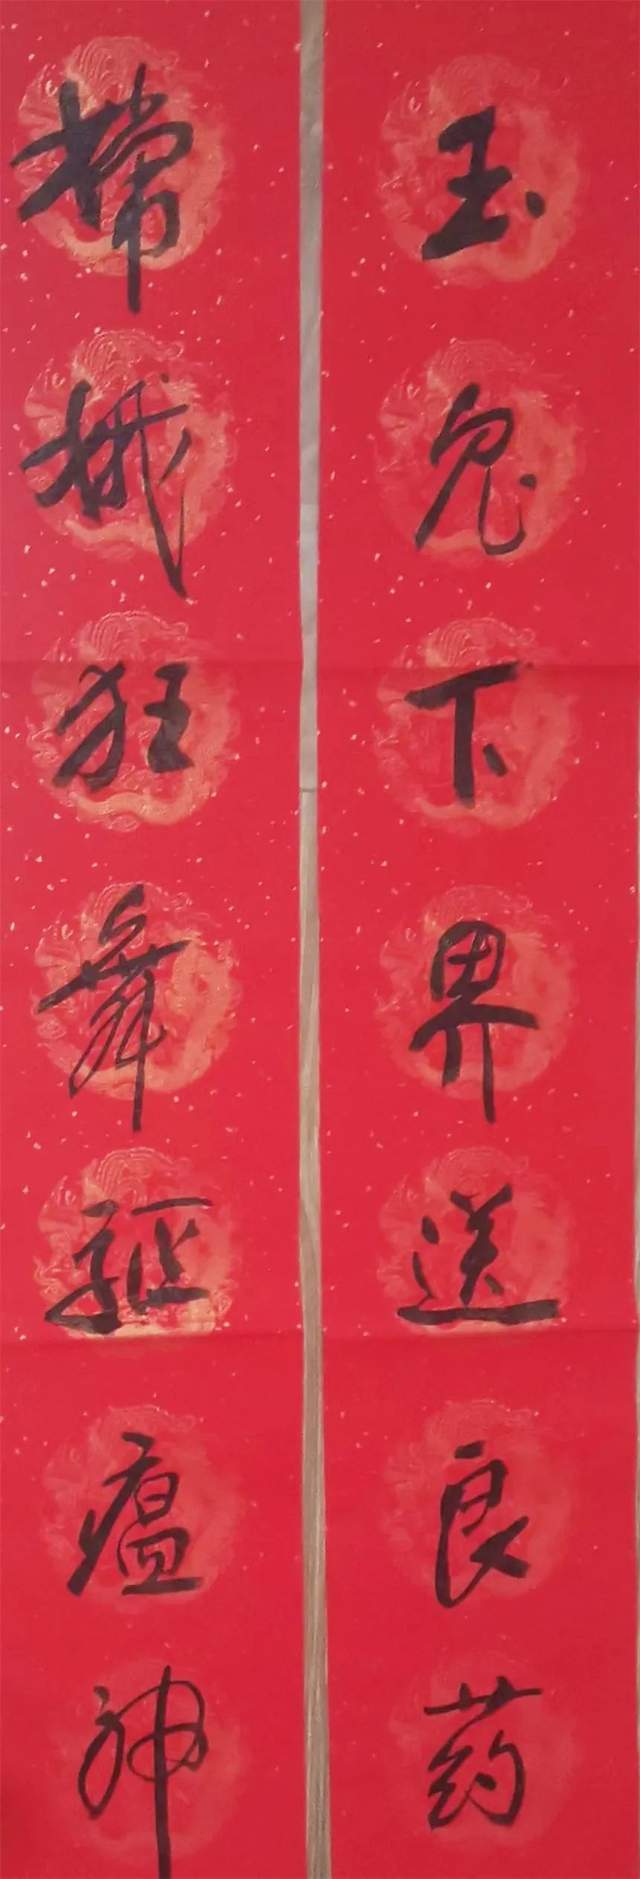 玉兔下界送良药
嫦娥狂舞驱瘟神